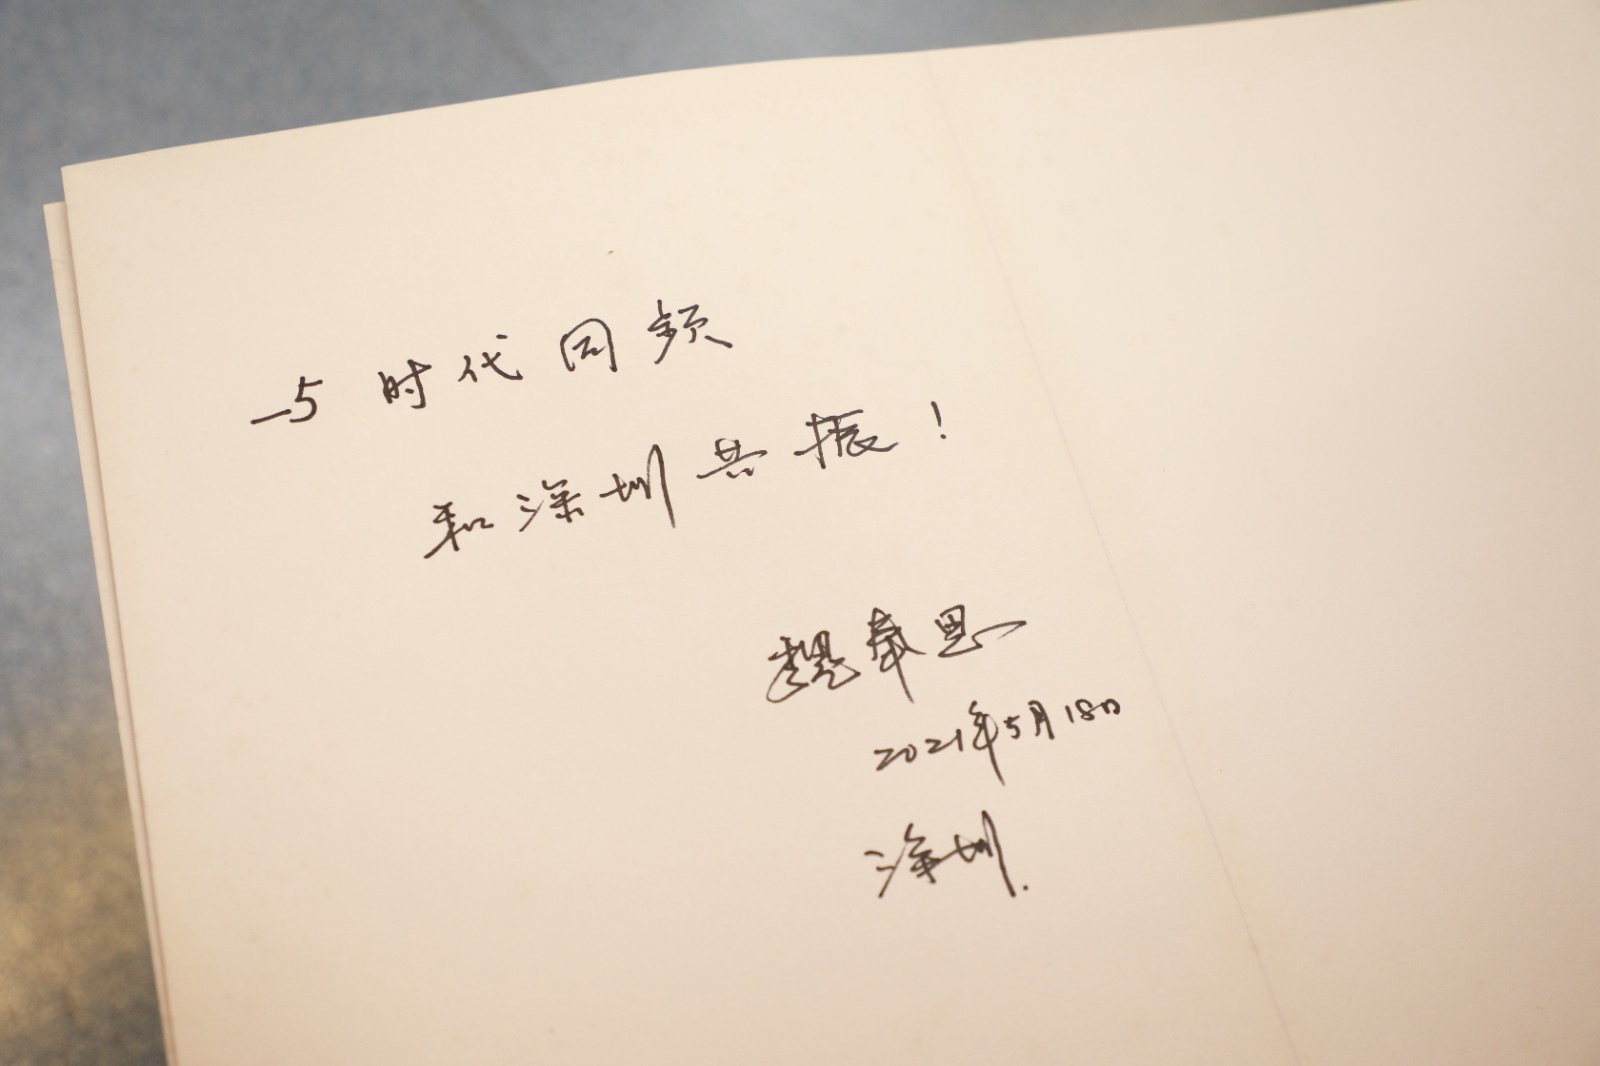 与时代同频
和深圳共振！
思
2021年5月18日
深圳.